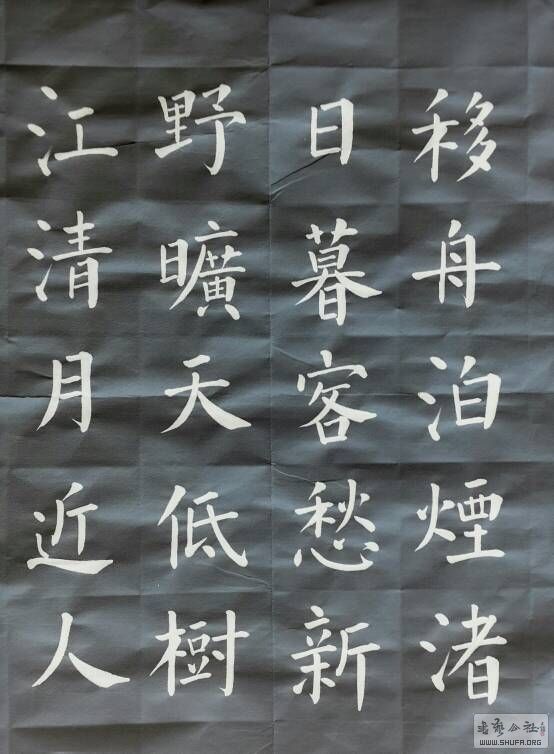 移舟泊煙渚
日暮客愁新
野曠天低樹
江清月近人
WWW.SHUFA.ORG